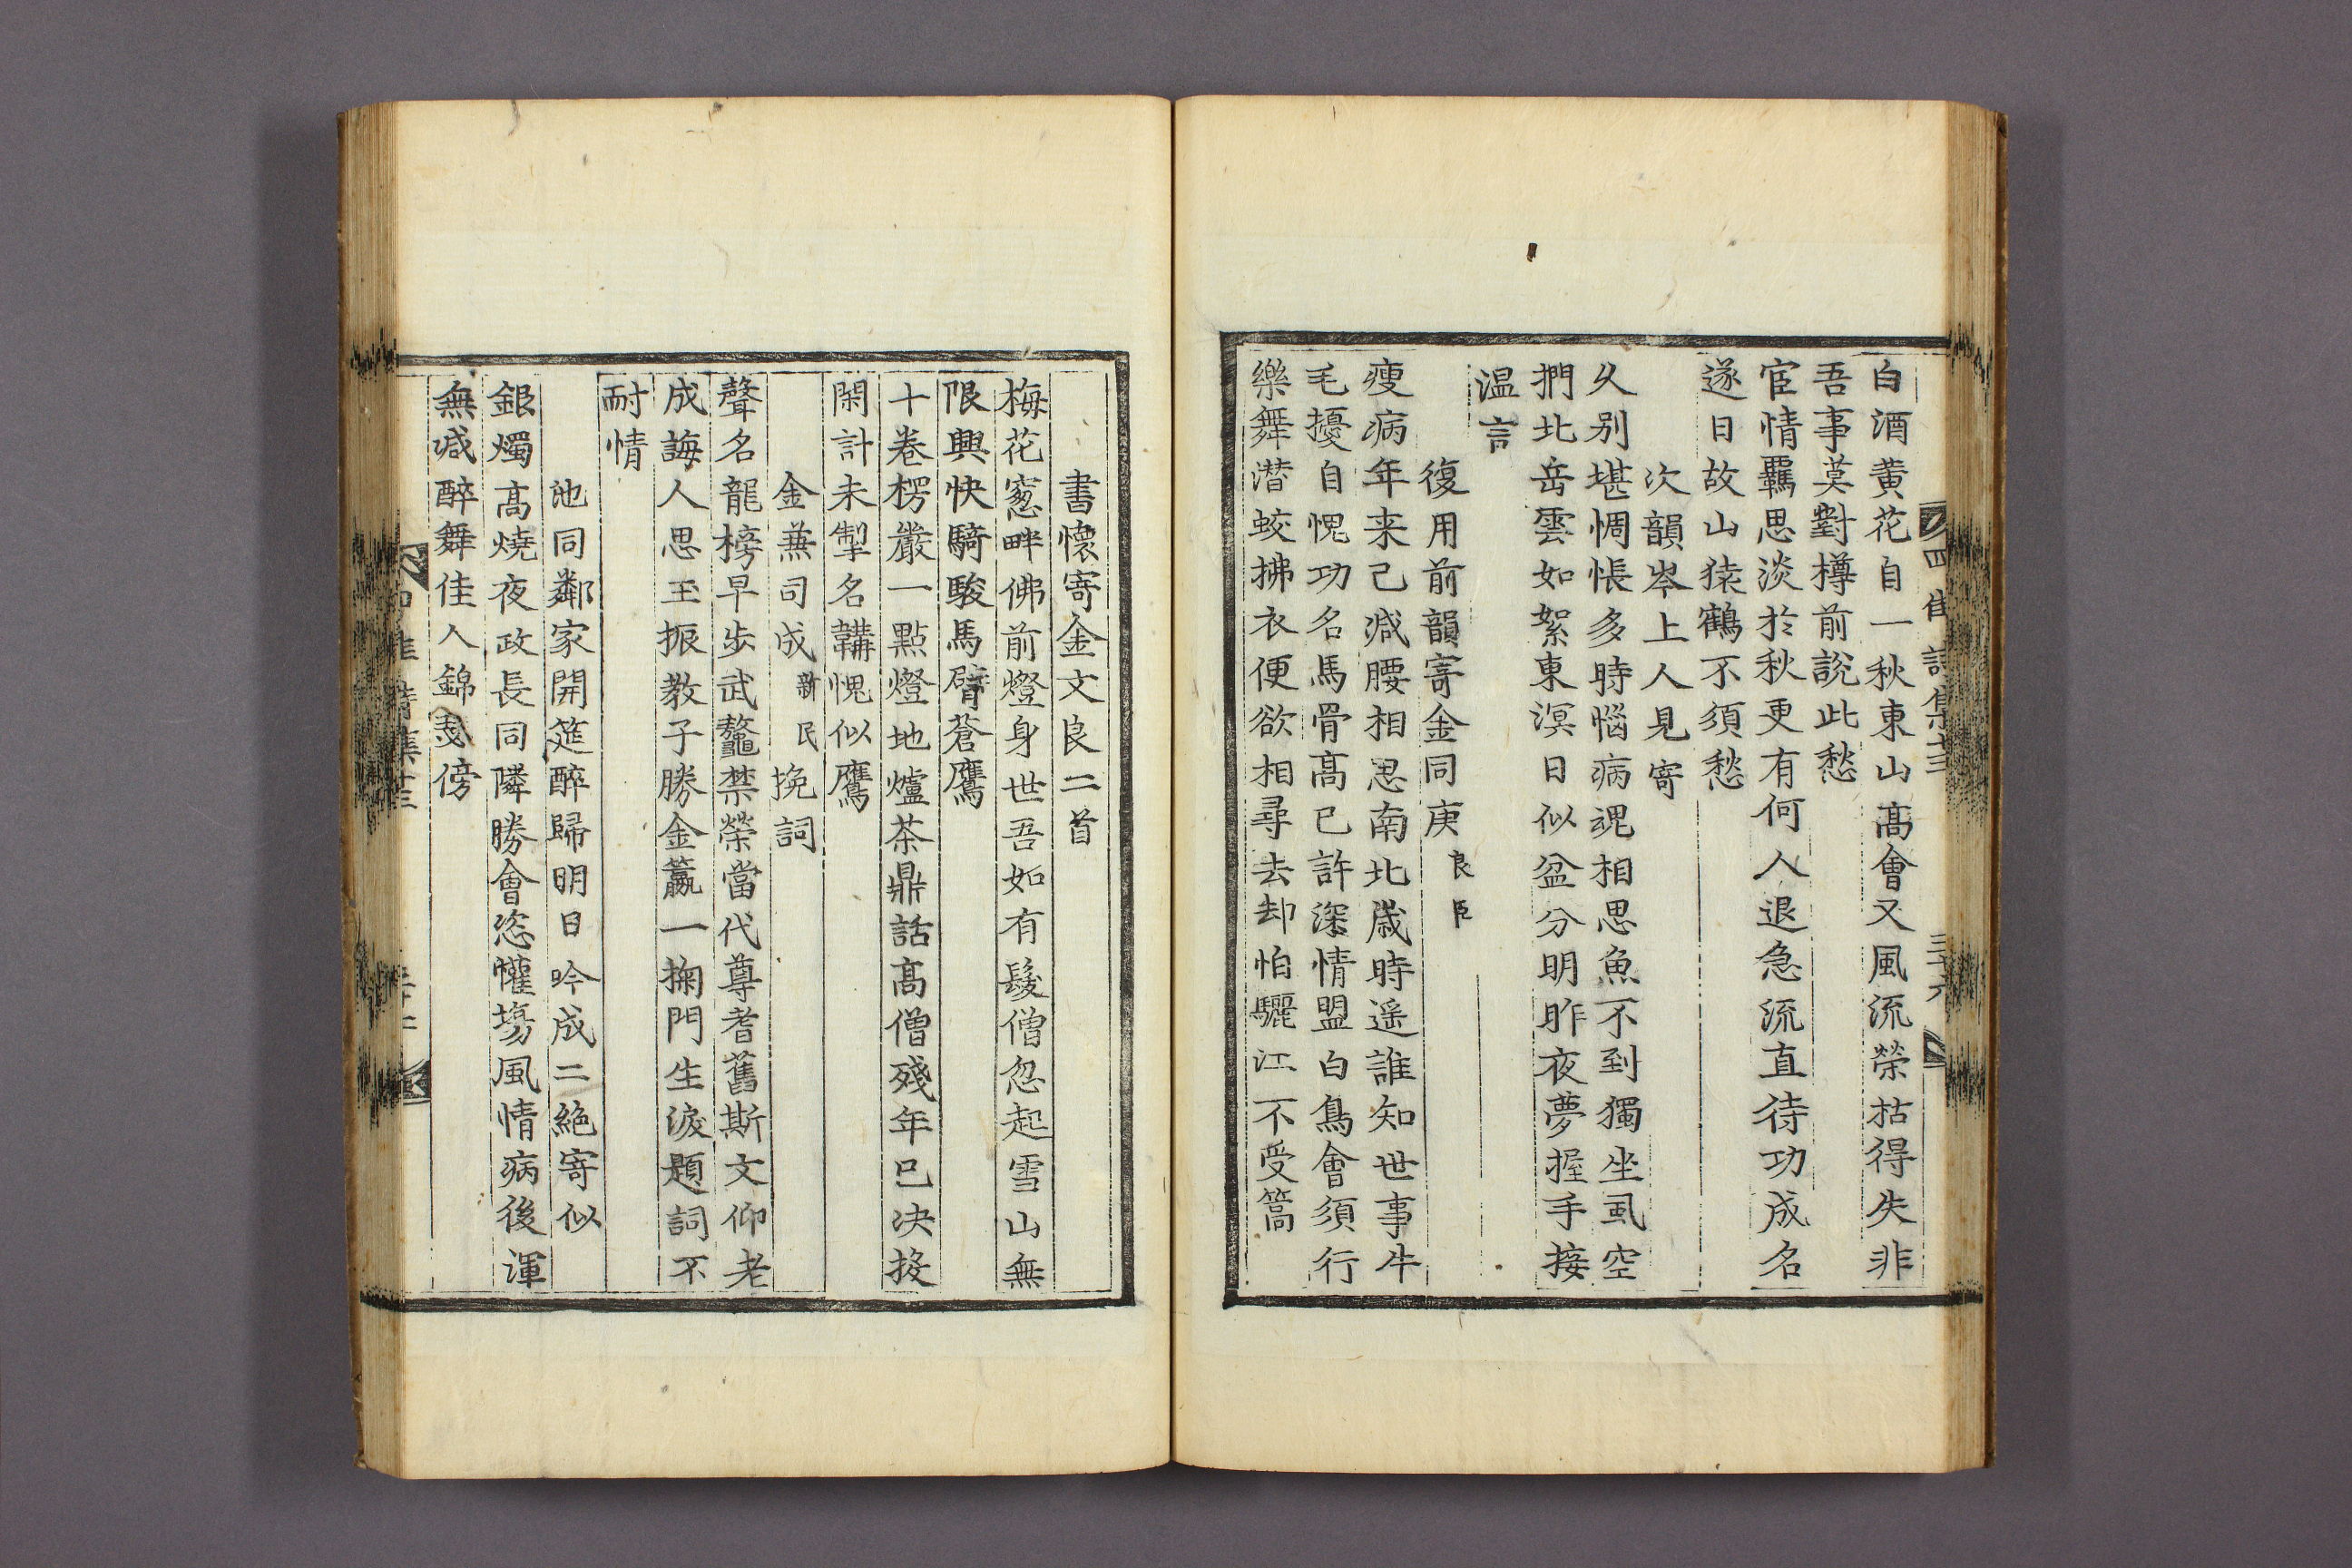 白酒黄花自一秋東山髙會又風流榮枯得失非
吾事莫對樽前說此愁
宦情羈思淡於秋更有何人退急流直待功成名
遂日故山猿鶴不須愁
次韻岑上人見寄
久别堪惆悵多時惱病魂相思魚不到獨坐虱空
捫北岳雲如絮東溟日似盆分明昨夜夢握手接
温言
復用前韻寄金同庚良臣
瘦病年来已减腰相思南北歲時遥誰知世事牛
毛擾自愧功名馬骨髙已許深情盟白鳥會須行
樂舞潜蛟拂衣便欲相尋去却怕驪江不受篙
四佳詩集
三十六
書懷寄金文良二首
梅花窓畔佛前燈身世吾如有髮僧忽起雪山無
限興快騎駿馬臂蒼鷹
十卷楞嚴一點燈地爐茶鼎話髙僧殘年已决投
閑計未掣名韝愧似鷹
金兼司成新民挽詞
聲名龍榜早步武鼇禁榮當代尊耆舊斯文仰老
成誨人思玉振教子勝金籯一掬門生淚題詞不
耐情
池同鄰家開筵醉歸明日吟成二絶寄似
銀燭髙燒夜政長同隣勝會恣懽場風情病後渾
無减醉舞佳人錦瑟傍